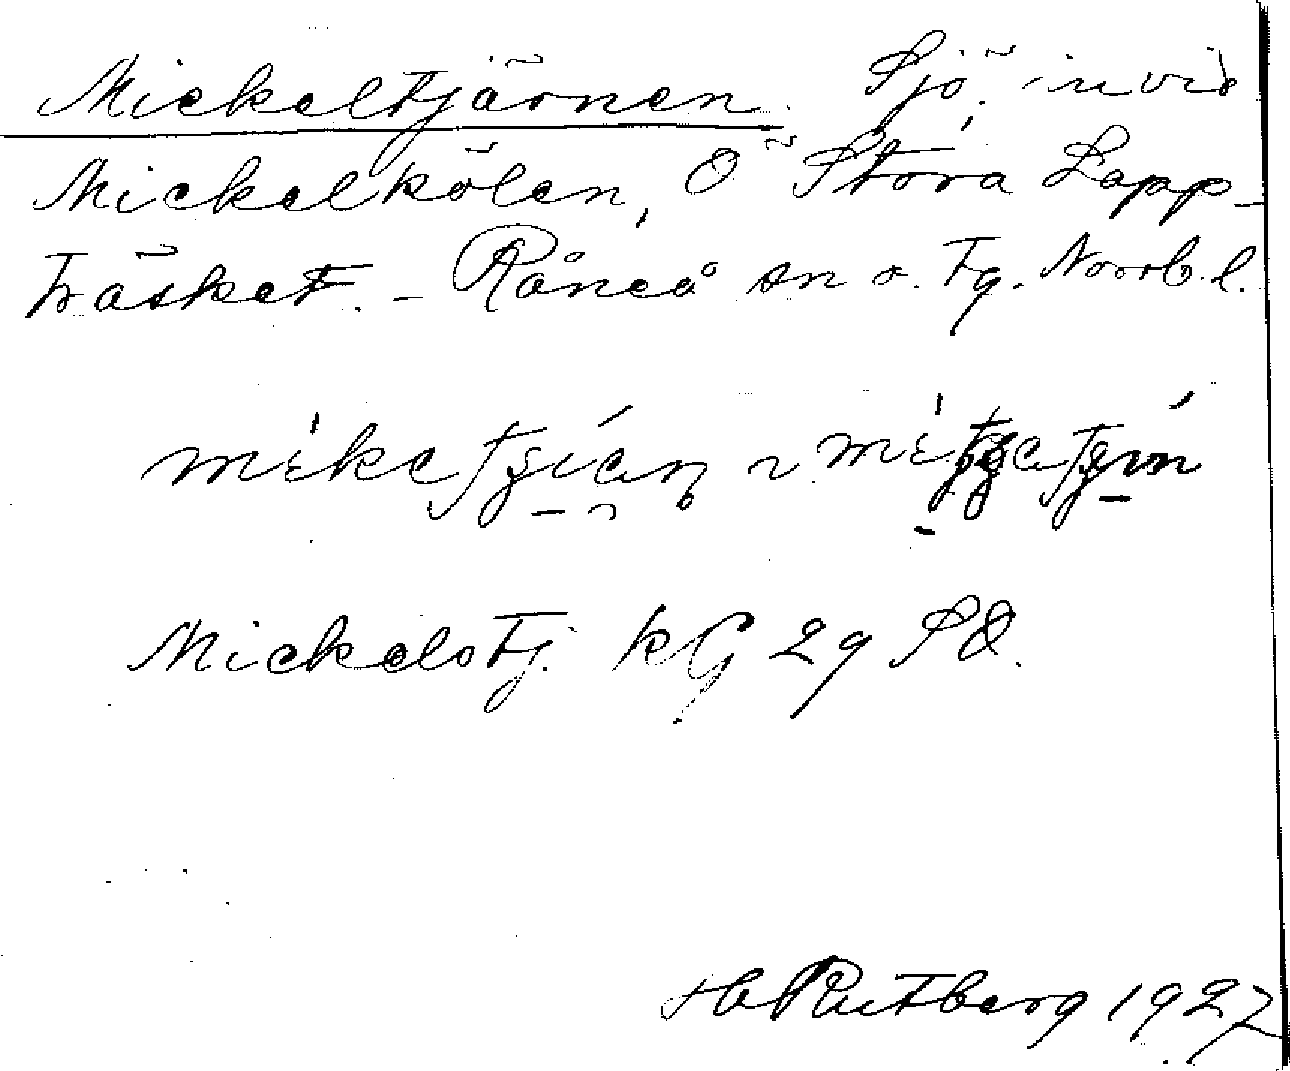 Mickeltjärnen. Sjö, invid
Mickelkölen, Ö Stora Lapp-
träsket. - Råneå sn o. tg. Norrb. l.
Mickelstj. kG 29 SO.
H Rutberg 1927